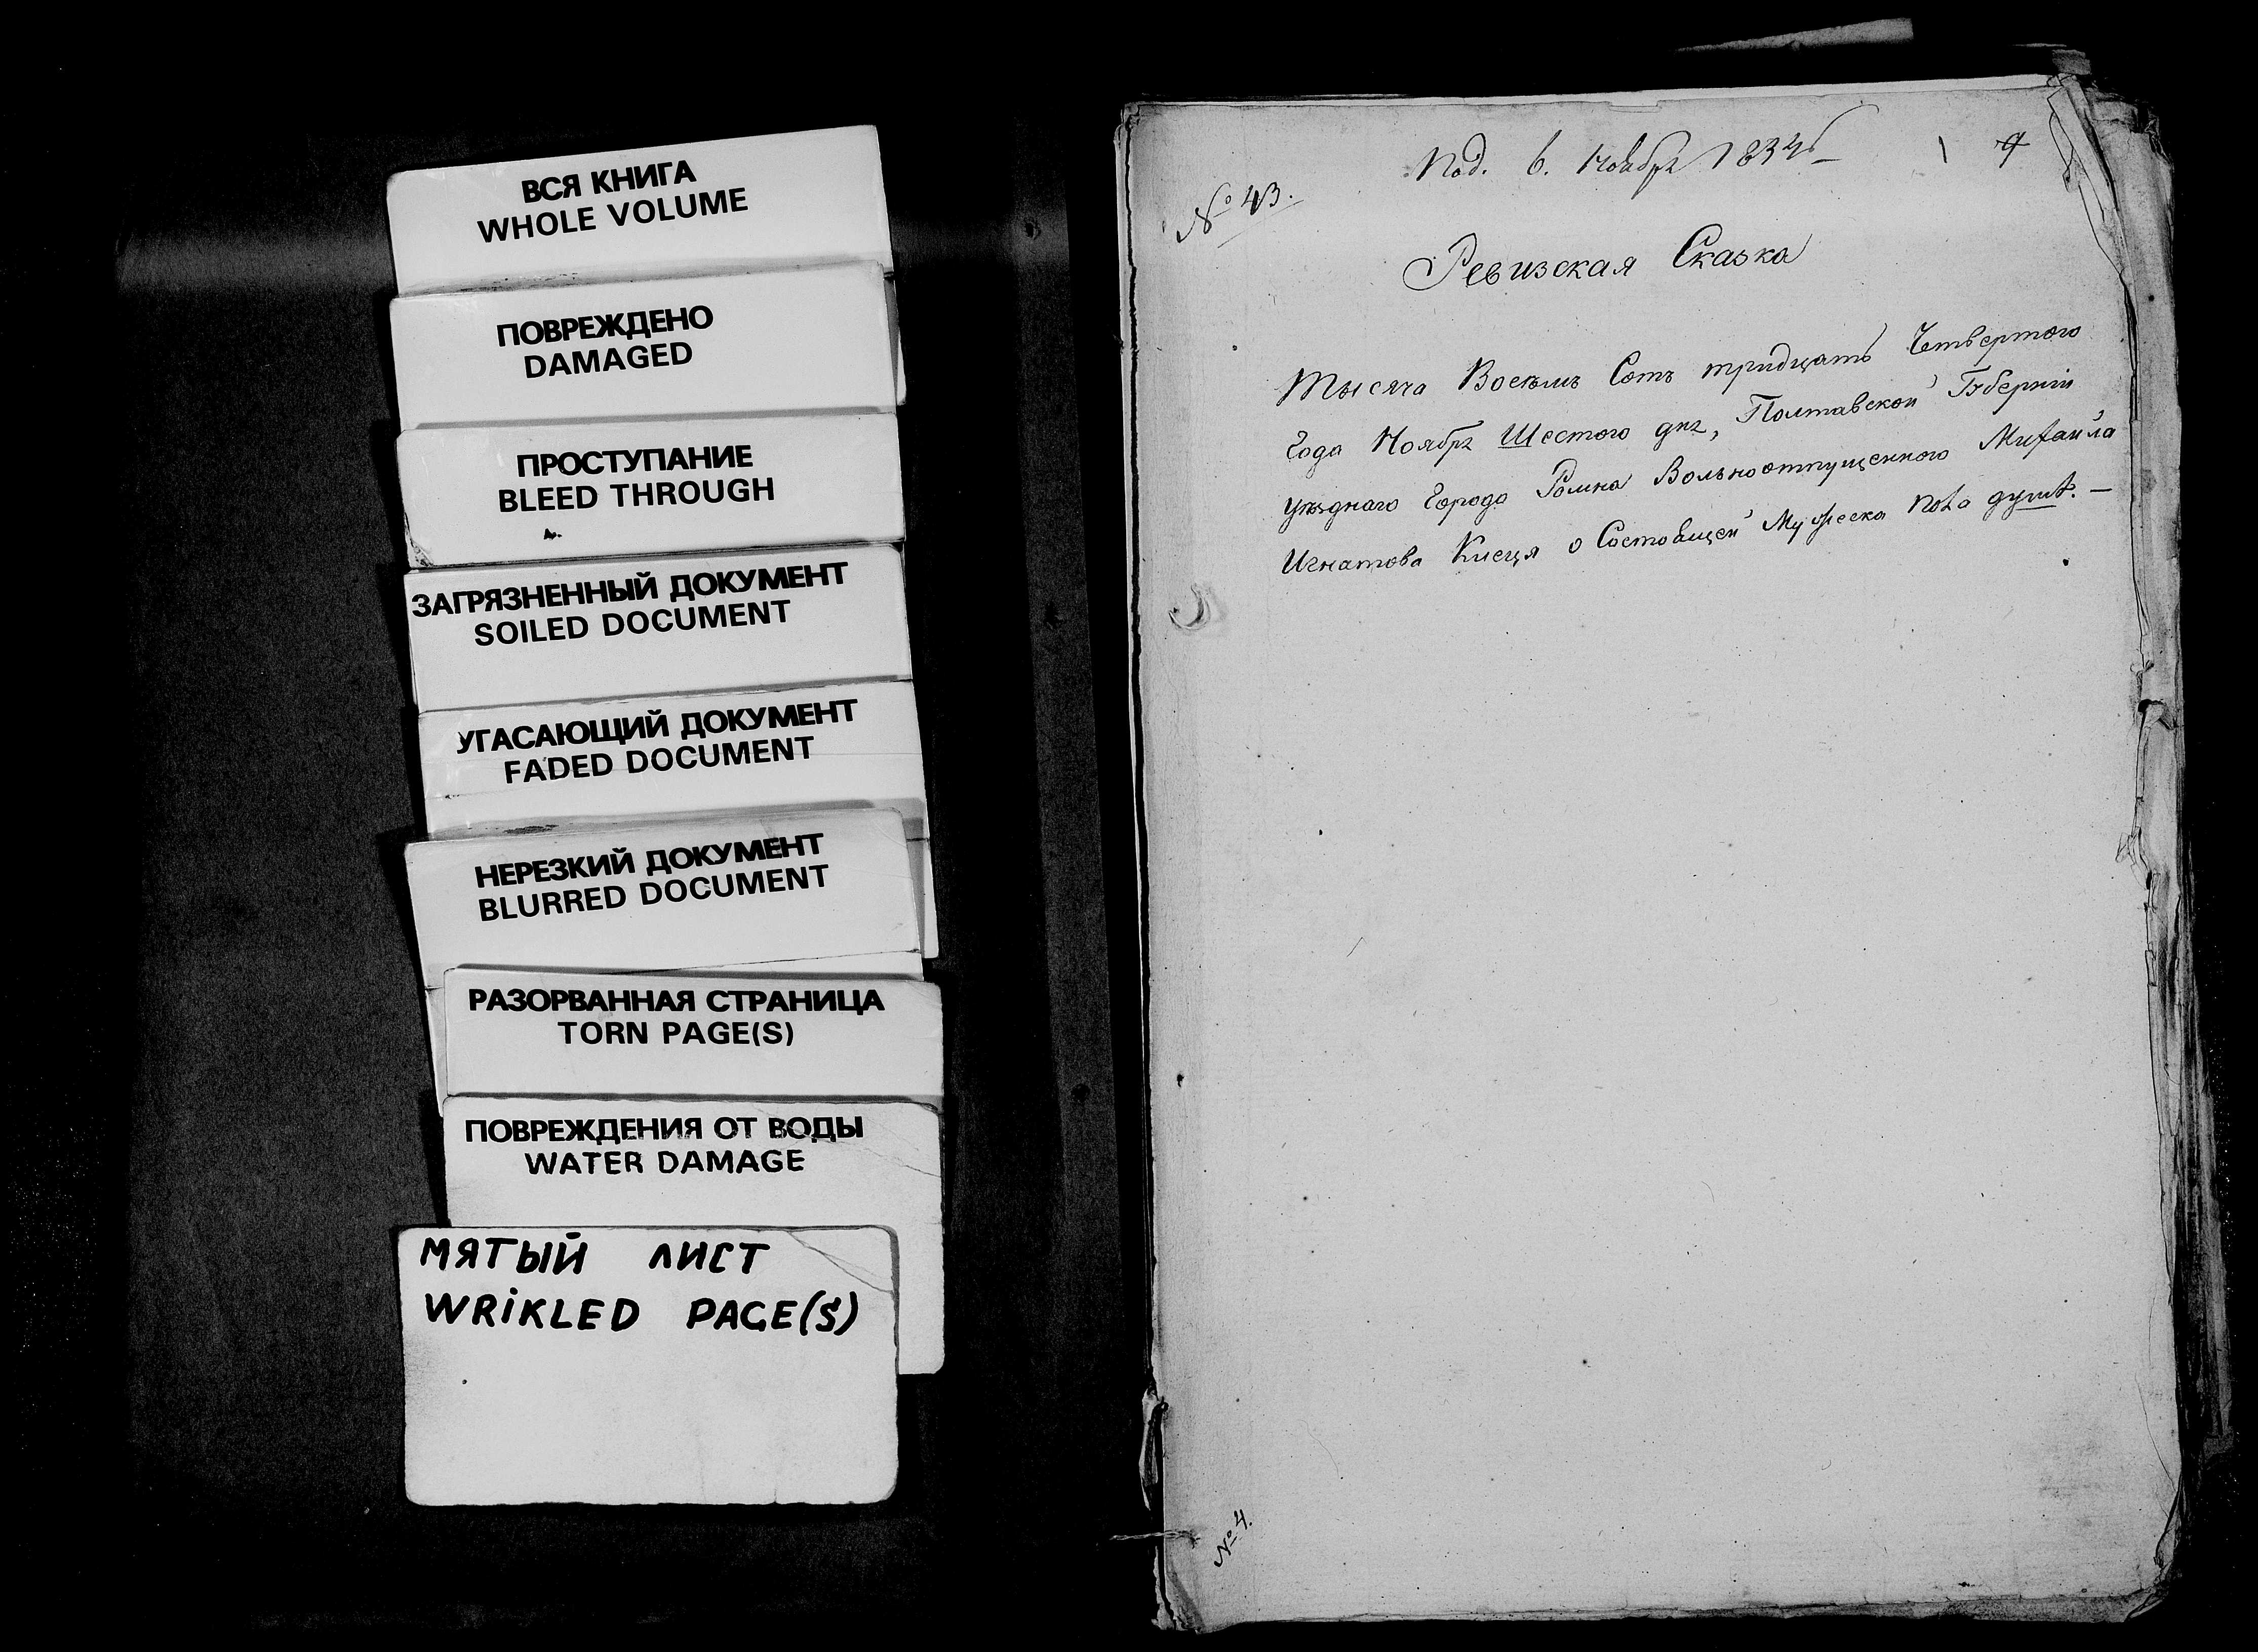 ВСЯ КНИГА
WHOLE VOLUME
ПОВРЕЖДЕНО
DAMAGED
ПРОСТУПАНИЕ
BLEED THROUGH
ЗАГРЯЗНЕННЫЙ ДОКУМЕНТ
SOILED DOCUMENT
УГАСАЮЩИЙ ДОКУМЕНТ
FADED DOCUMENT
НЕРЕЗКИЙ ДОКУМЕНТ
BLURRED DOCUMENT
РАЗОРВАННАЯ СТРАНИЦА
TORN PAGE(S)
ПОВРЕЖДЕНИЯ ОТ ВОДЫ
WATER DAMAGE
МЯТЫЙ ЛИСТ
WRIKLED PAGE(S)
Под. 6. Ноября 1834
1
№ 43.
Ревизская Сказка
Тысяча Восемь Сотъ тридцать Четвертого
Года Ноября Шестого дня, Полтавской Губерніи
уѣзднаго Города Ромна Вольноотпущенного Михаила
Игнатова о Состоящей Мужеска пола душѣ. —
№ 4.